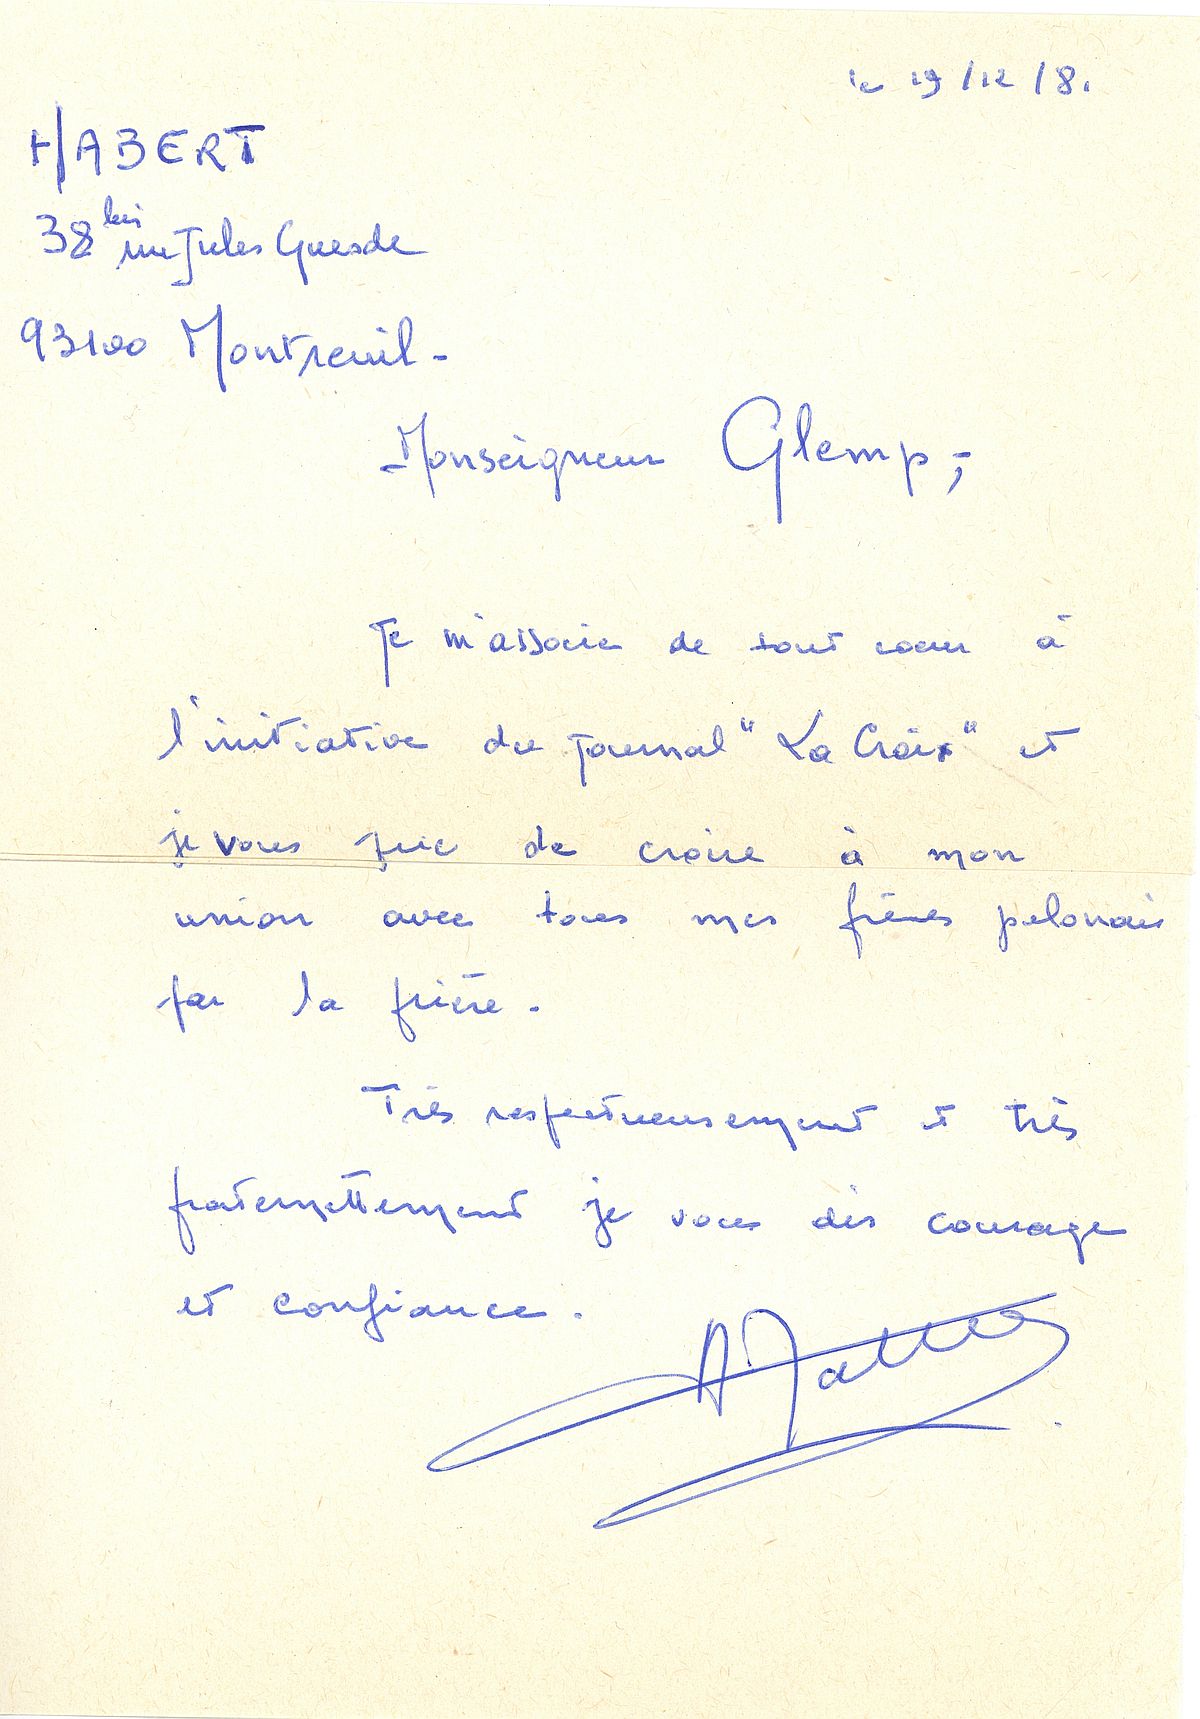 le 19/12/81
HABERT
38 bis rue Jules Guesde
93100 Montreuil -
Monseigneur Glemp,
Je m'associe de tout coeur à
l'initiative du journal "La Croix" et
je vous prie de croire à mon
union avec tous mes frères polonais
par la prière.
Très respectueusement et très
fraternellement je vous dis courage
et confiance.